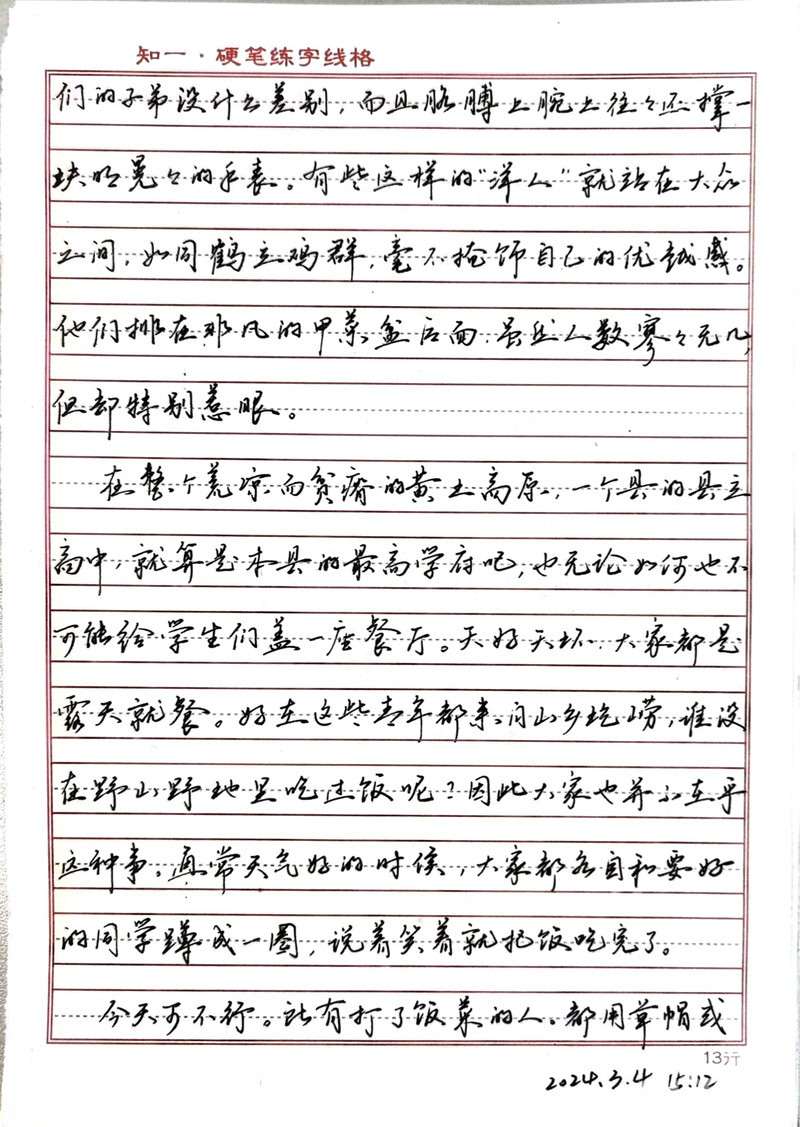 知一·硬笔练字线格
们的子弟没什么差别，而且胳膊上腕上往々还撑一
块明晃々的手表。有些这样的“洋人”就站在大众
之间，如同鹤立鸡群，毫不掩饰自己的优越感。
他们排在非凡的甲菜盆后面，虽然人数寥々无几，
但却特别惹眼。
在整个荒凉而贫瘠的黄土高原，一个县的县立
高中，就算是本县的最高学府吧，也无论如何也不
可能给学生们盖一座餐厅。天好天坏，大家都是
露天就餐。好在这些青年都来自山乡圪崂，谁没
在野山野地里吃过饭呢？因此大家也并不在乎
这种事。通常天气好的时候，大家都各自和要好
的同学蹲成一圈，说着笑着就把饭吃完了。
今天可不行。所有打了饭菜的人，都用草帽或
13行
2024.3.4 15:12